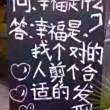 问:幸福是什么?
答:幸福是?
找个对的
人剪个合
适的发